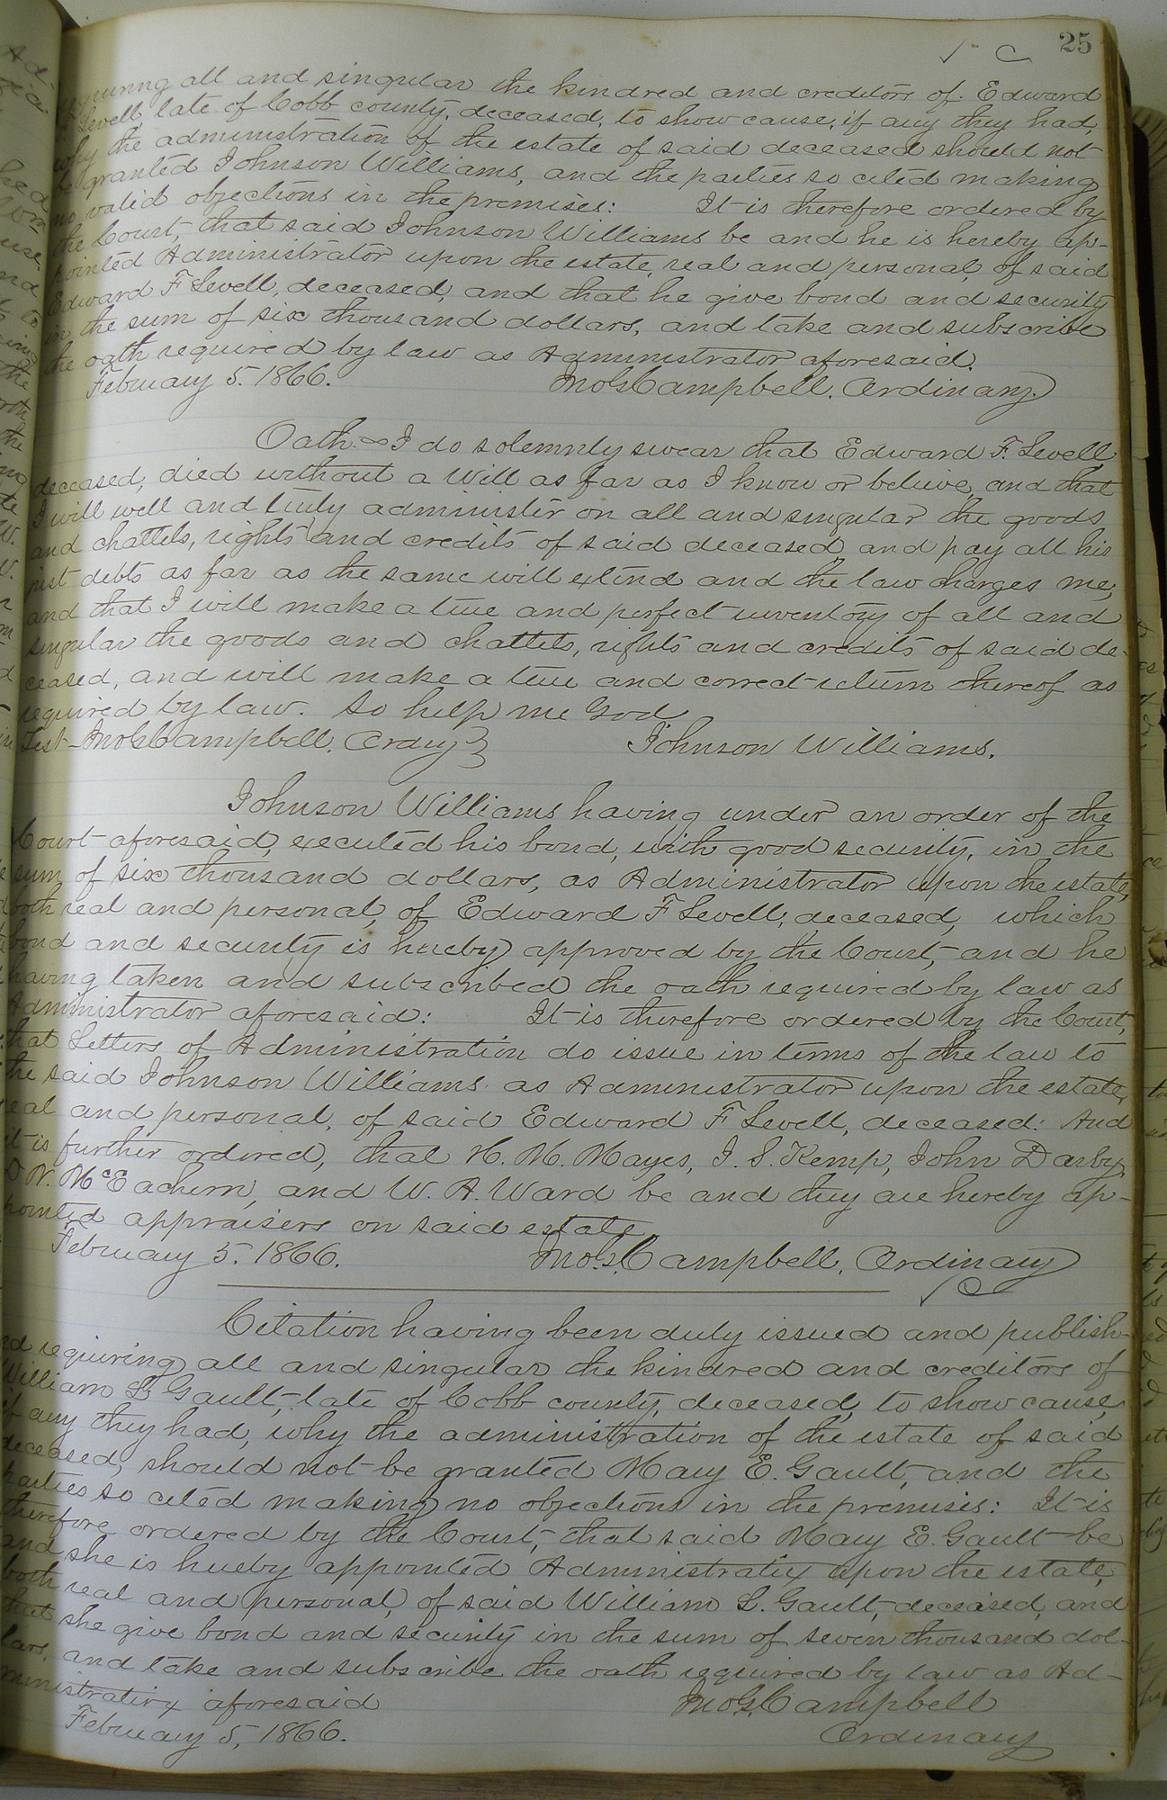 25
requiring all and singular the kindred and creditors of Edward
F Sevell late of Cobb county, deceased, to show cause, if any they had,
why the administration of the estate of said deceased should not
be granted Johnson Williams, and the parties so cited making
no valid objections in the premises: It is therefore ordered by
the Court, that said Johnson Williams be and he is hereby ap-
pointed Administrator upon the estate, real and personal, of said
Edward F Sevell, deceased, and that he give bond and security
in the sum of six thousand dollars, and take and subscribe
the oath required by law as Administrator aforesaid.
February 5. 1866. Jno G Campbell, Ordinary
Oath I do solemnly swear that Edward F. Sevell
deceased, died without a Will as far as I know or believe, and that
I will well and truly administer on all and singular the goods,
and chattels, rights and credits of said deceased, and pay all his
just debts as far as the same will extend and the law charges me,
and that I will make a true and perfect inventory of all and
singular the goods and chattels, rights and credits of said de-
ceased, and will make a true and correct return thereof as
required by law. So help me God
Test- Jno G Campbell, Ordny } Johnson Williams.
Johnson Williams having under an order of the
Court aforesaid, executed his bond, with good security, in the
sum of six thousand dollars, as Administrator upon the estate,
both real and personal, of Edward F Sevell, deceased, which
bond and security is hereby approved by the Court, and he
having taken and subscribed the oath required by law as
Administrator aforesaid: It is therefore ordered by the Court,
that Letters of Administration do issue in terms of the law to
the said Johnson Williams as Administrator upon the estate,
real and personal, of said Edward F Sevell, deceased: And
it is further ordered, that N. M. Mayes, J. S. Kemp, John Darby,
D N. McEachern, and W. A. Ward be and they are hereby ap-
pointed appraisers on said estate
February 5. 1866. Jno. G. Campbell, Ordinary
Citation having been duly issued and publish-
ed requiring all and singular the kindred and creditors of
William L Gault, late of Cobb county, deceased, to show cause,
if any they had, why the administration of the estate of said
deceased, should not be granted Mary E. Gault, and the
parties so cited making no objections in the premises: It is
therefore ordered by the Court, that said Mary E. Gault be
and she is hereby appointed Administratrix upon the estate,
both real and personal, of said William L. Gault, deceased, and
that she give bond and security in the sum of seven thousand dol-
lars, and take and subscribe the oath required by law as Ad-
ministratrix aforesaid Jno G. Campbell
February 5, 1866. Ordinary